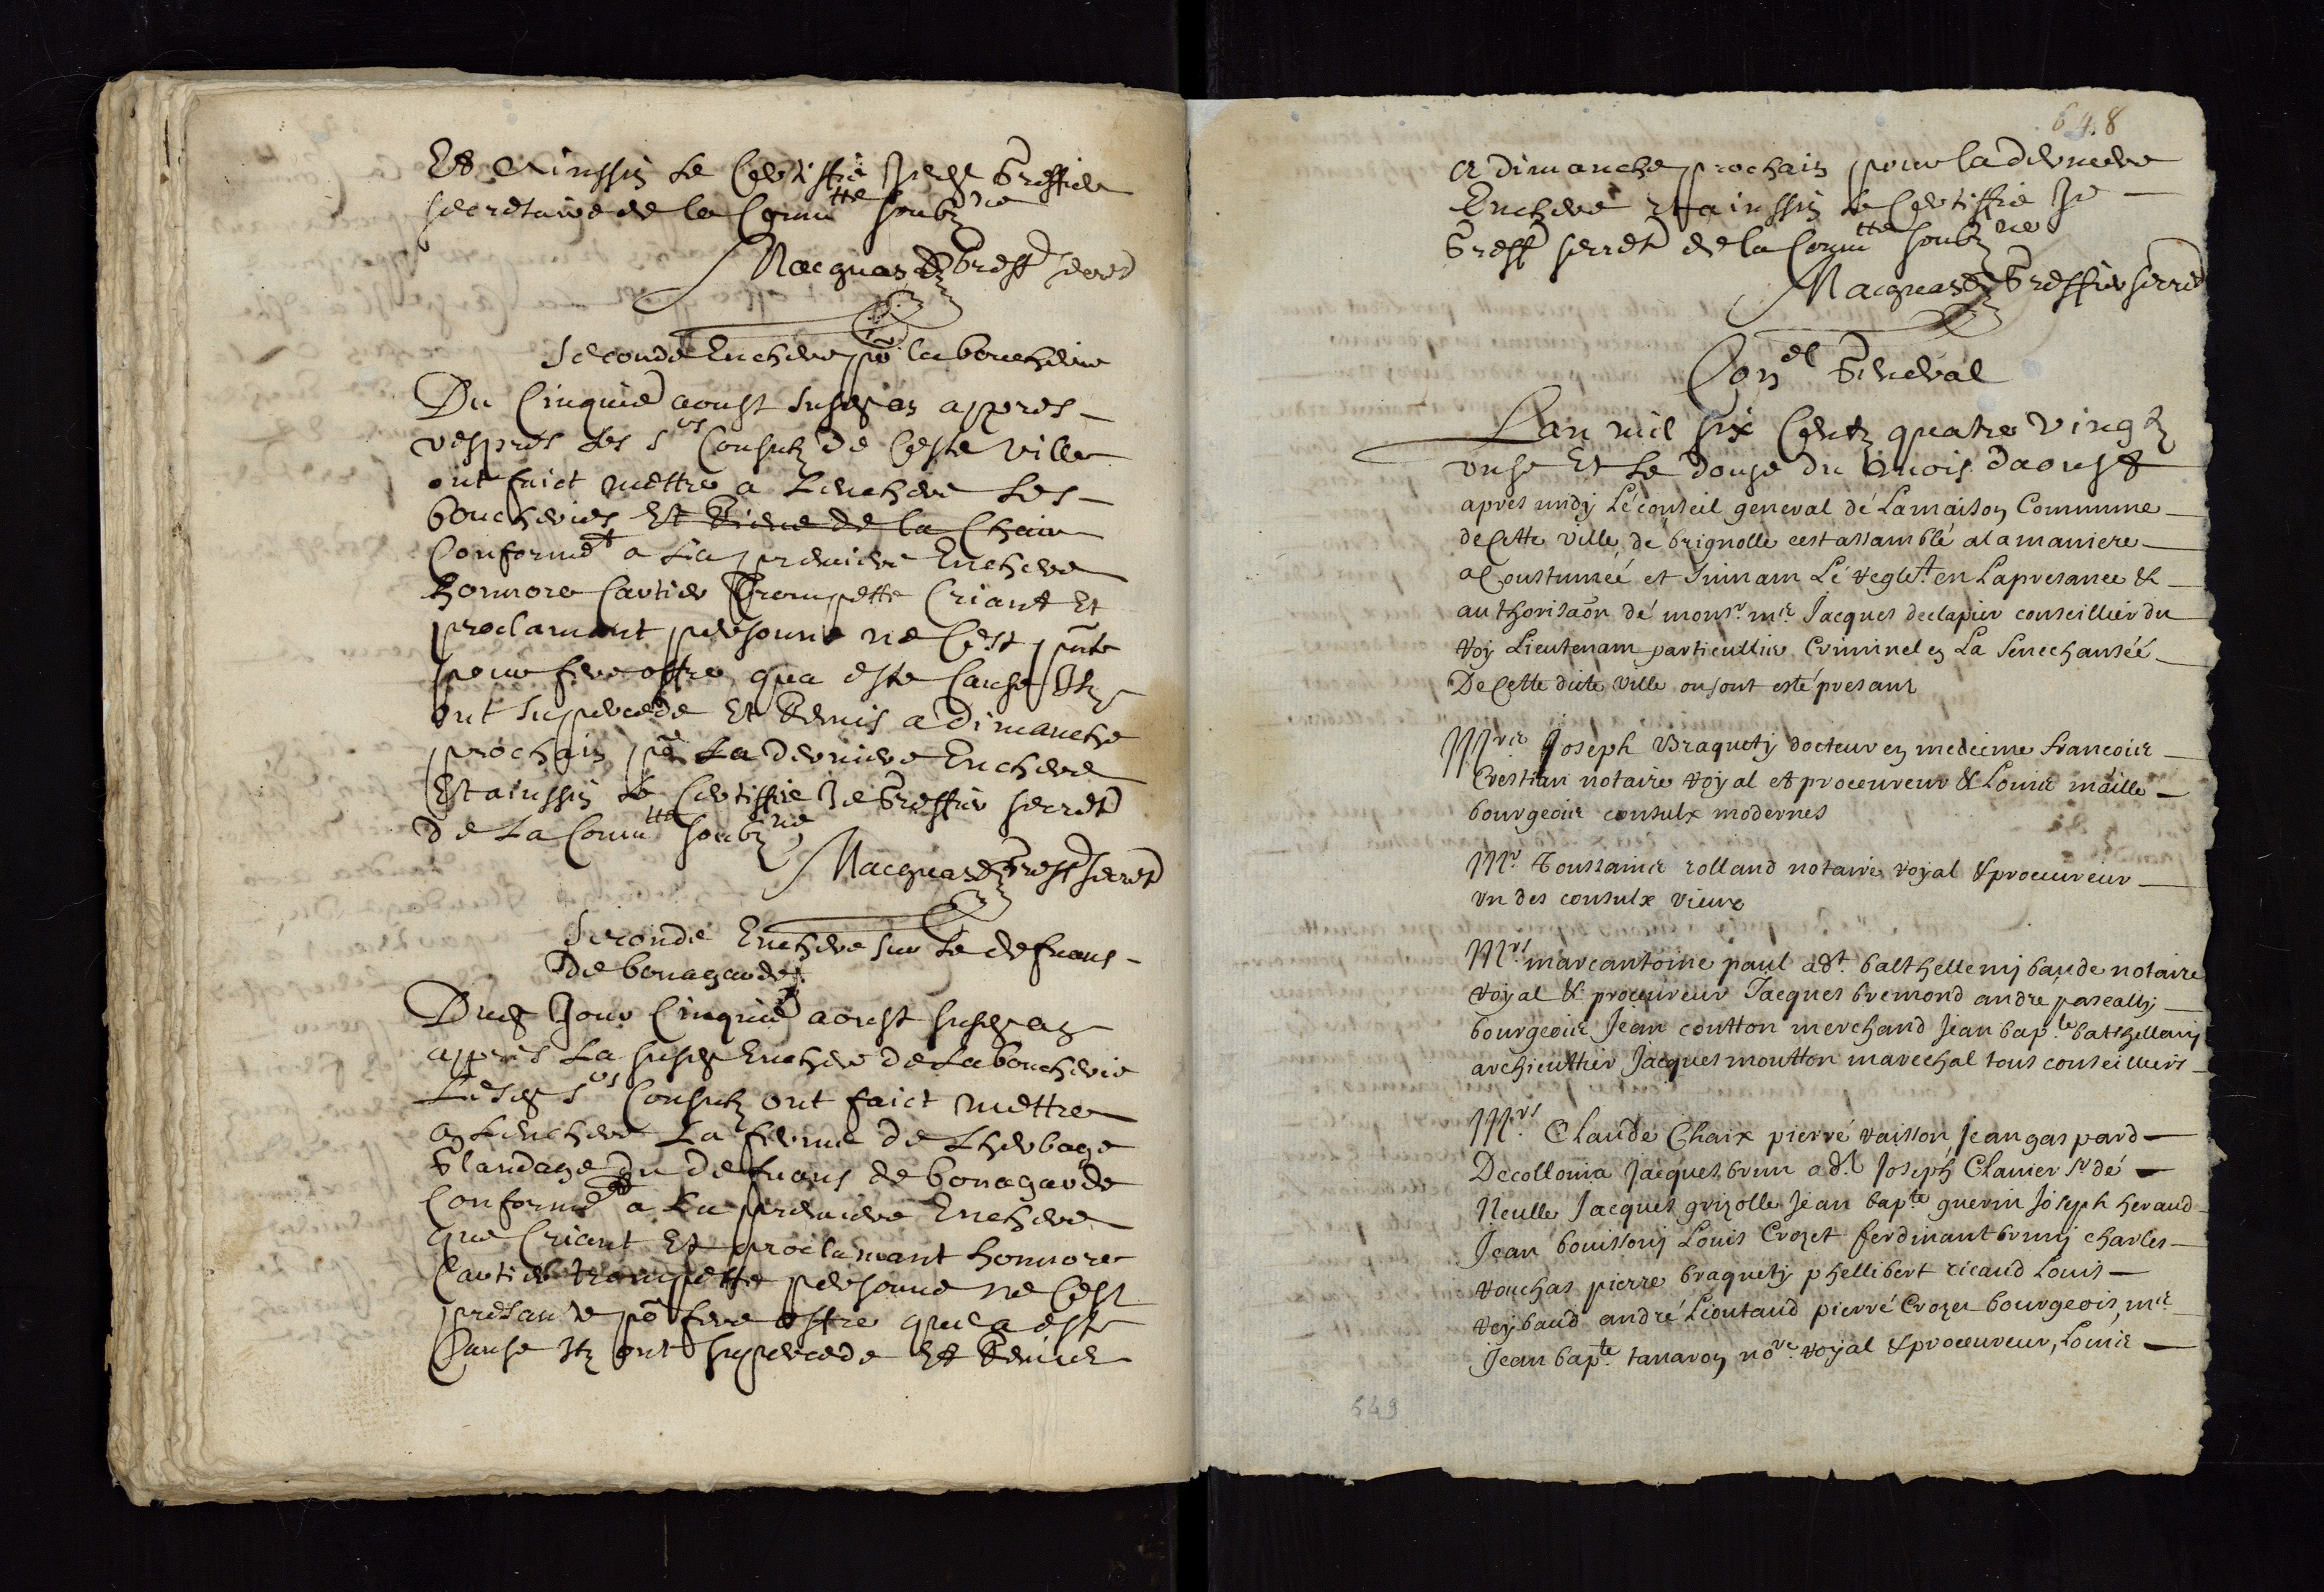 Et Ainssin le Certiffie Je dt Greffier
secretaire de la Comutte soubzne
Macquan Greff secret
Seconde Enchere po la boucherie
Du Cinquie aoust susd an appres
vespres les srs Consulz de Ceste ville
ont faict mettre a Lenchere Les
boucheries Et Riene de la Chair
Conformet a La premiere Enchere
honnore Cartier Trompette Criant Et
proclamant personne ne Cest pnte
pour fere offre qua este Cause Ilz
ont supercede Et Remis a dimanche
prochain po La derniere Enchere
Et ainssin le Certiffie Je Greffier secret
de La Comutte soubzne
Macquan Greff secret
Seconde Enchere sur Le deffuans
de bonagarde
Dud Jour Cinquie aoust susd an
appres La susd Enchere de Laboucherie
Lesd srs Consulz ont faict mettre
a Lenchere La ferme de Lherbage
Glandage du deffuans de bonagarde
Conformet a La premiere Enchere
que Criant Et proclamant honnore
Cartier trompette personne ne Cest
presante po fere offre quil a este
Cause Ilz ont supercede Et Remis
648
a dimanche prochain pour la derniere
Enchere Et ainssin le Certiffie Je
Greff secret de la Comutte soubzne
Macquan Greffier secret
Conel General
Lan mil six Centz quatre vingtz
unse Et le douse du mois daoust
apres midy Lé conseil general dé Lamaison Commune
de Cette ville dé brignolle cest assamblé alamaniere
acoustumeé et suivam Lé reglet en Lapresance &
authorisaon dé monsr mre Jacques declapier conseillier du
roy Lieutenam particullier Criminel en La senechauseé
De Cette dicte ville ou sont esté presant
Mres Joseph Braquety docteur en medecine francois
Crestian notaire royal et procureur & Louis maille
bourgeois consulx modernes
Mr Toussainct rolland notaire royal & procureur
un des consulx vieux
Mrs marcantoine paul adt balthellemy baude notaire
royal & procureur Jacques bremond andre pascally
bourgeois Jean coutton merchand Jean bapte batthellemy
archieuttier Jacques moutton marechal tous conseilliers
Mrs Claude Chaix pierré vaisson Jean gaspard
Decollonia Jacques brun adt Joseph Clavier sr dé
Neulle Jacques grizolle Jean bapte guerin Joseph heraud
Jean bouissony Louis Crozet ferdinant bruny charles
rouchas pierre braquety phellibert ricaud Louis
reybaud andré Lioutaud pierré Crozet bourgeois, mre
Jean bapte tanaron nore royal & procureur, Louis
649